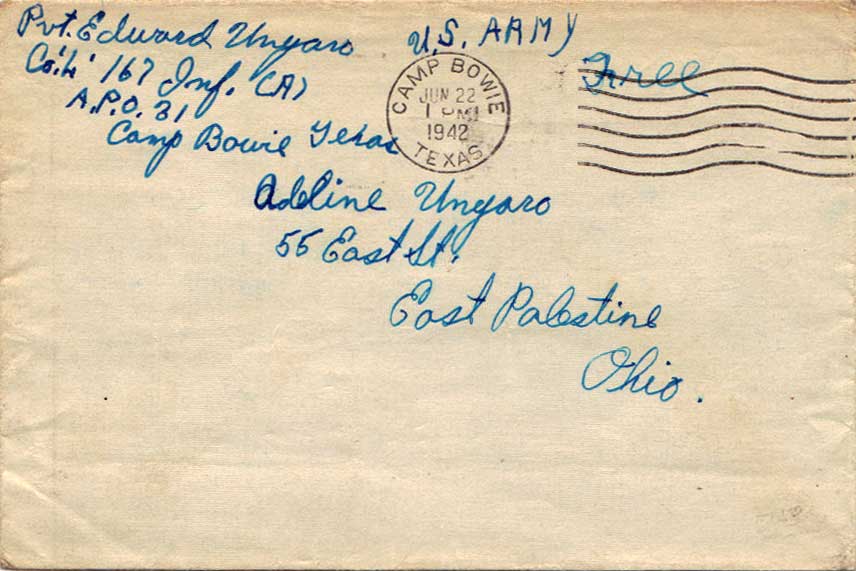 Pvt. Edward Ungaro U.S. ARMY
Co. 'L' 167 Inf. (A)
A.P.O. 31
Camp Bowie Texas
Free
CAMP BOWIE
JUN 22
1 PM
1942
TEXAS
Adeline Ungaro
55 East St.
East Palestine
Ohio.